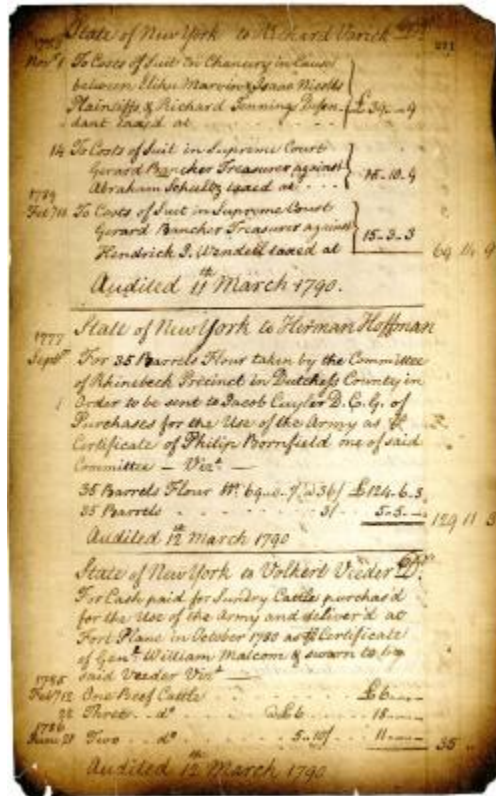 State of New York to Richard Varick Dr.
211
1788
Nov. 6 To Costs of Suit in Chancery in Cause
between Elihu Marvin & Isaac Nicolls
Plaintiffs & Richard Jenning Defen-
dant taxed at £39.--4
14 To Costs of Suit in Supreme Court
Gerard Bancker Treasurer against
Abraham Schultz taxed at . . . 15.10.4
1789
To Costs of Suit in Supreme Court
Gerard Bancker Treasurer against 15.3.3
Hendrick J. Wendell taxed at 69 14
Audited 11th March 1790.
1777
State of New York to Herman Hoffman
Sept.
For 35 Barrels Flour taken by the Committee
of Rhinebeck Precinct in Dutchess County in
Order to be sent to Jacob Cuyler D.C.G. of
Purchases for the Use of the Army as
Certificate of Philip Bornfield one of said
Committee — Vizt —
35 Barrels Flour Wt. 69.0.7 @ 36/ £124.6.3
35 Barrels . . . . 3/ 5.5.--
129 11 3
Audited 12th March 1790
State of New York to Volkert Veeder Dr.
For Cash paid for Sundry Cattle purchas'd
for the Use of the Army and deliver'd at
Fort Plane in October 1780 as Certificate
of Genl. William Malcom & sworn to by
said Veeder Vizt —
1785
Feb'y 12 One Beef Cattle £6
22 Three . . do @ £6 . . . 18
1786
June 28 Two . . do . . 5.10/ . . 11 35
Audited 12th March 1790